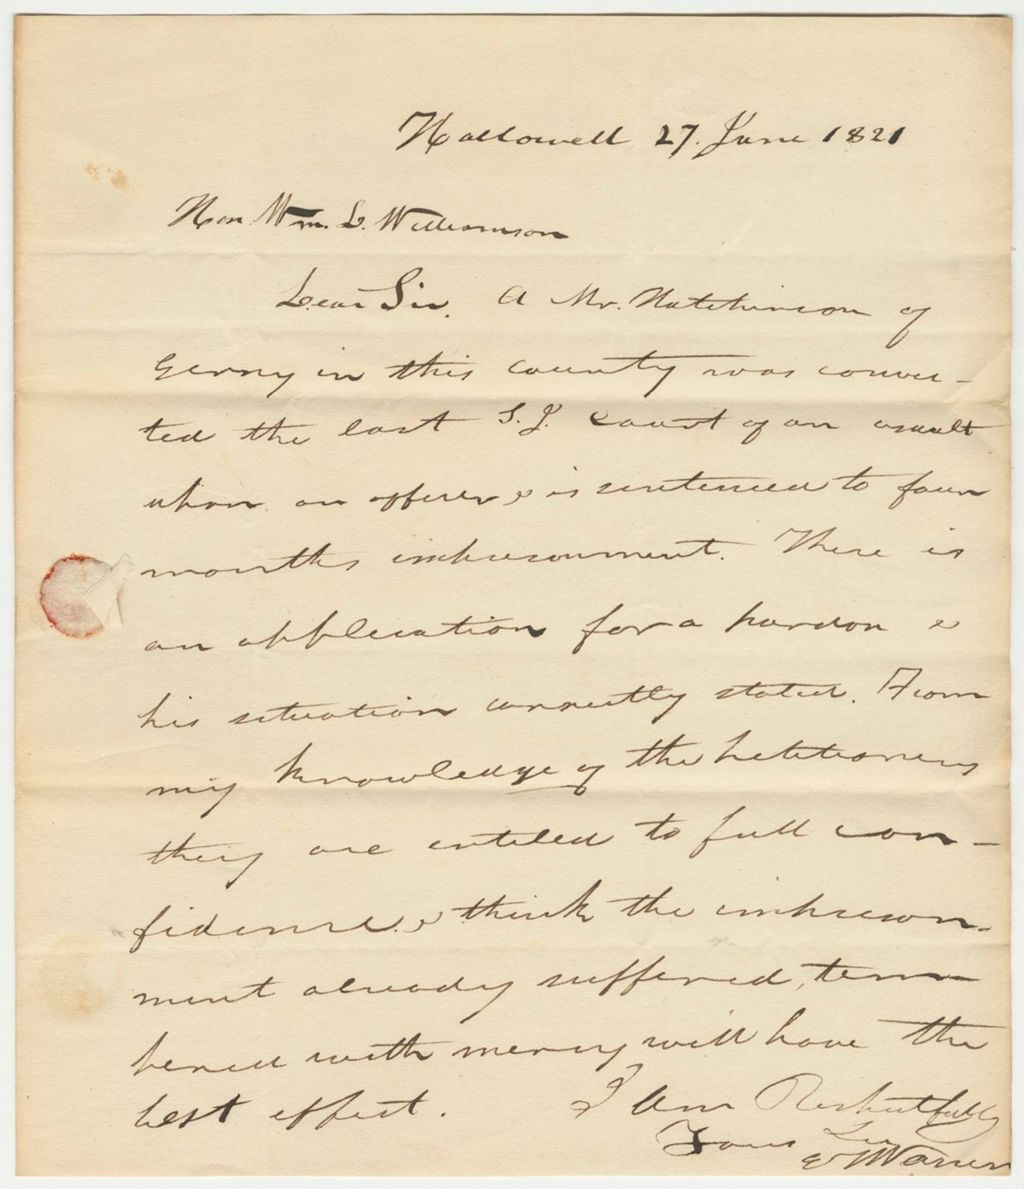 Hallowell 27. June 1821
Hon Wm. D. Williamson
Dear Sir. A Mr. Hutchinson of
in this county was convic-
ted the last S. J. Court of an asault
upon an officer & is sentenced to four
months imprisonment. There is
an application for a pardon &
his situation correctly stated. From
my knowledge of the petitioners
they are entitled to full con-
fidence. & think the imprison-
ment already suffered, tem-
pered with mercy will have the
best effect. I am Respectfully
Your
Warren